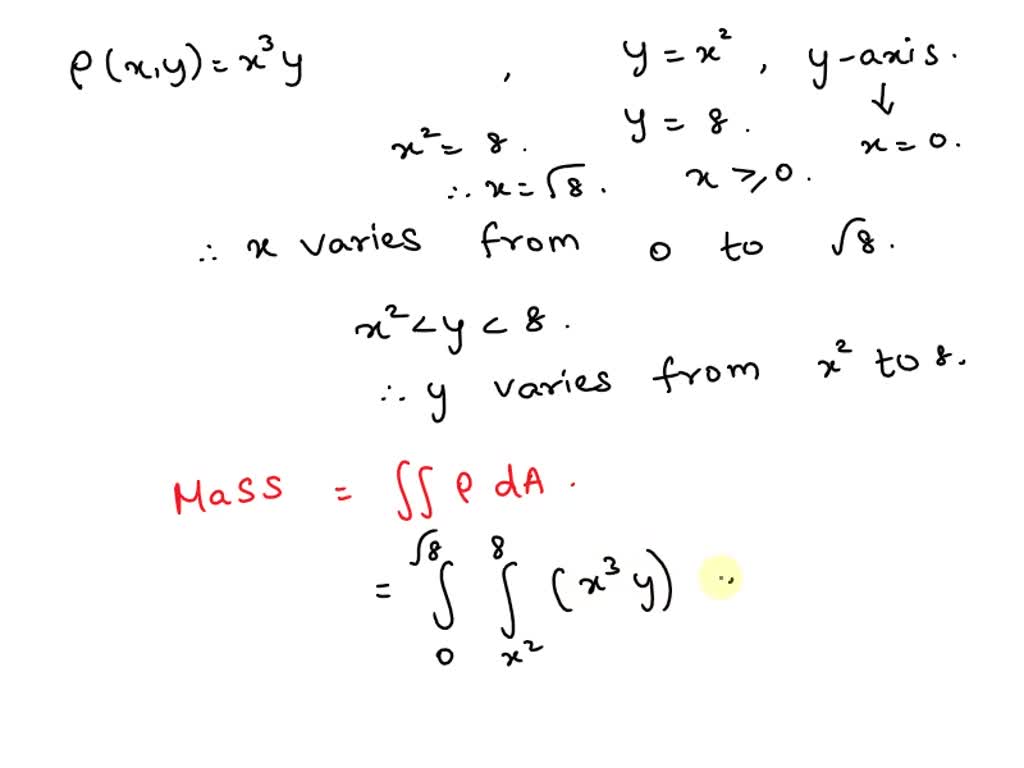 ρ(x,y) = x³y , y = x², y-axis.
↓
x² = 8. y = 8. x = 0.
∴ x = √8. x ≥ 0.
∴ x varies from 0 to √8.
x² < y < 8.
∴ y varies from x² to 8.
Mass = ∬ ρ dA.
= ∫₀^√8 ∫ₓ²^8 (x³y)